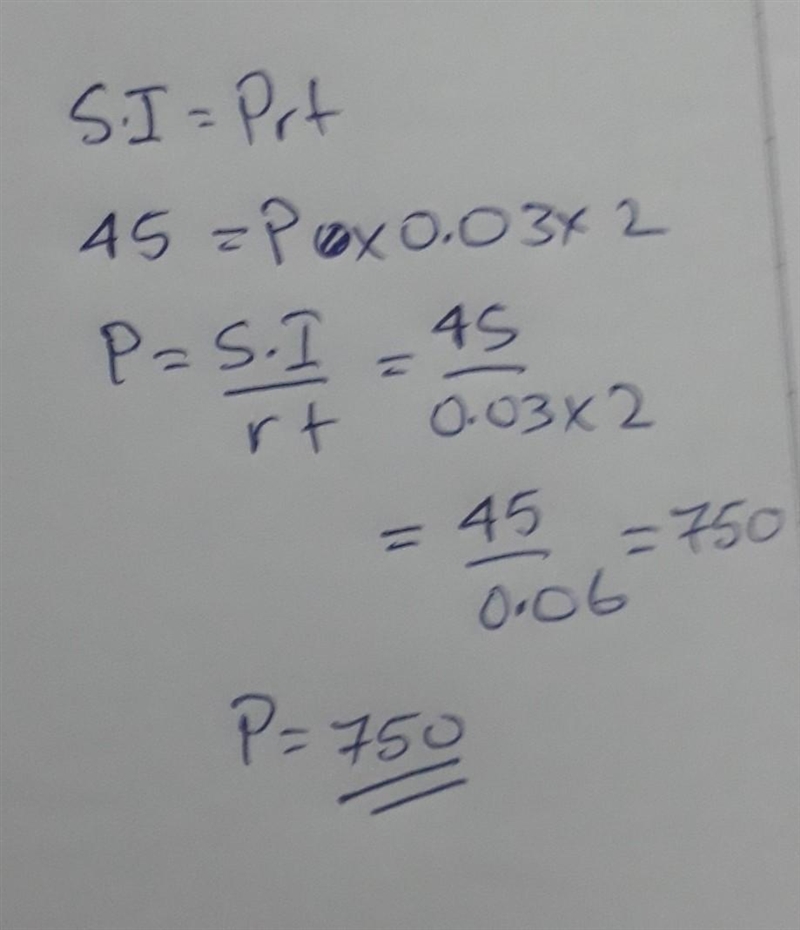 S.I = Prt
45 = P x 0.03 x 2
P = S.I / rt = 45 / 0.03 x 2
= 45 / 0.06 = 750
P = 750